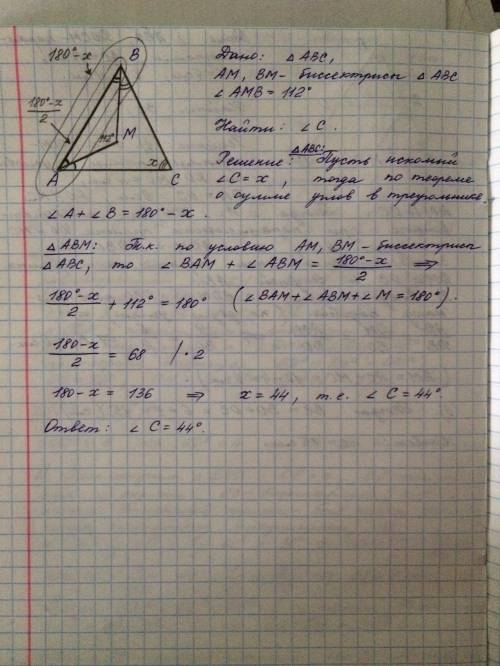 180°-x
B
180°-x
2
112°
M
x
A
C
Дано: △ABC,
AM, BM - биссектрисы △ABC
∠AMB = 112°
Найти: ∠C.
△ABC:
Решение: Пусть искомый
∠C = x, тогда по теореме
о сумме углов в треугольнике
∠A + ∠B = 180° - x.
△ABM: Т.к. по условию AM, BM - биссектрисы
△ABC, то ∠BAM + ∠ABM = (180°-x)/2 ⇒
(180°-x)/2 + 112° = 180° (∠BAM + ∠ABM + ∠M = 180°).
(180-x)/2 = 68 /·2
180 - x = 136 ⇒ x = 44, т.е. ∠C = 44°.
Ответ: ∠C = 44°.